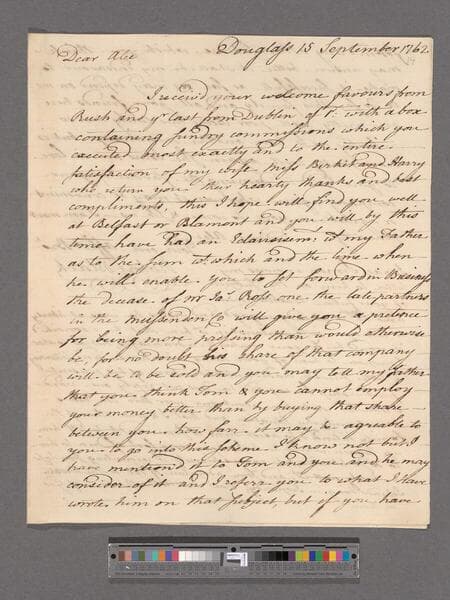 Douglass 15 September 1762
Dear Alec
I receivd your welcome favours from
Rush and yr last from Dublin of 1st with a box
containing sundry commissions which you
executed most exactly and to the entire
satisfaction of my wife Miss Birket and Harry
who return you their hearty thanks and best
compliments, this I hope will find you well
at Belfast or Blamont and you will by this
time have had an Eclairissemt wt my Father
as to the sum wt which and the time when
he will enable you to set forward in Business
the decease of Mr Jas Ross one the late partners
in the Mussenden Co will give you a pretence
for being more pressing than would otherwise
be, for no doubt his share of that company
will be to be sold and you may tell my father
that you think Tom & you cannot employ
your money better than by buying that share
between you how farr it may be agreable to
you to go into this scheme I know not but I
have mention'd it to Tom and you and he may
consider of it and I referr you to what I have
wrote him on that subject, but if you have